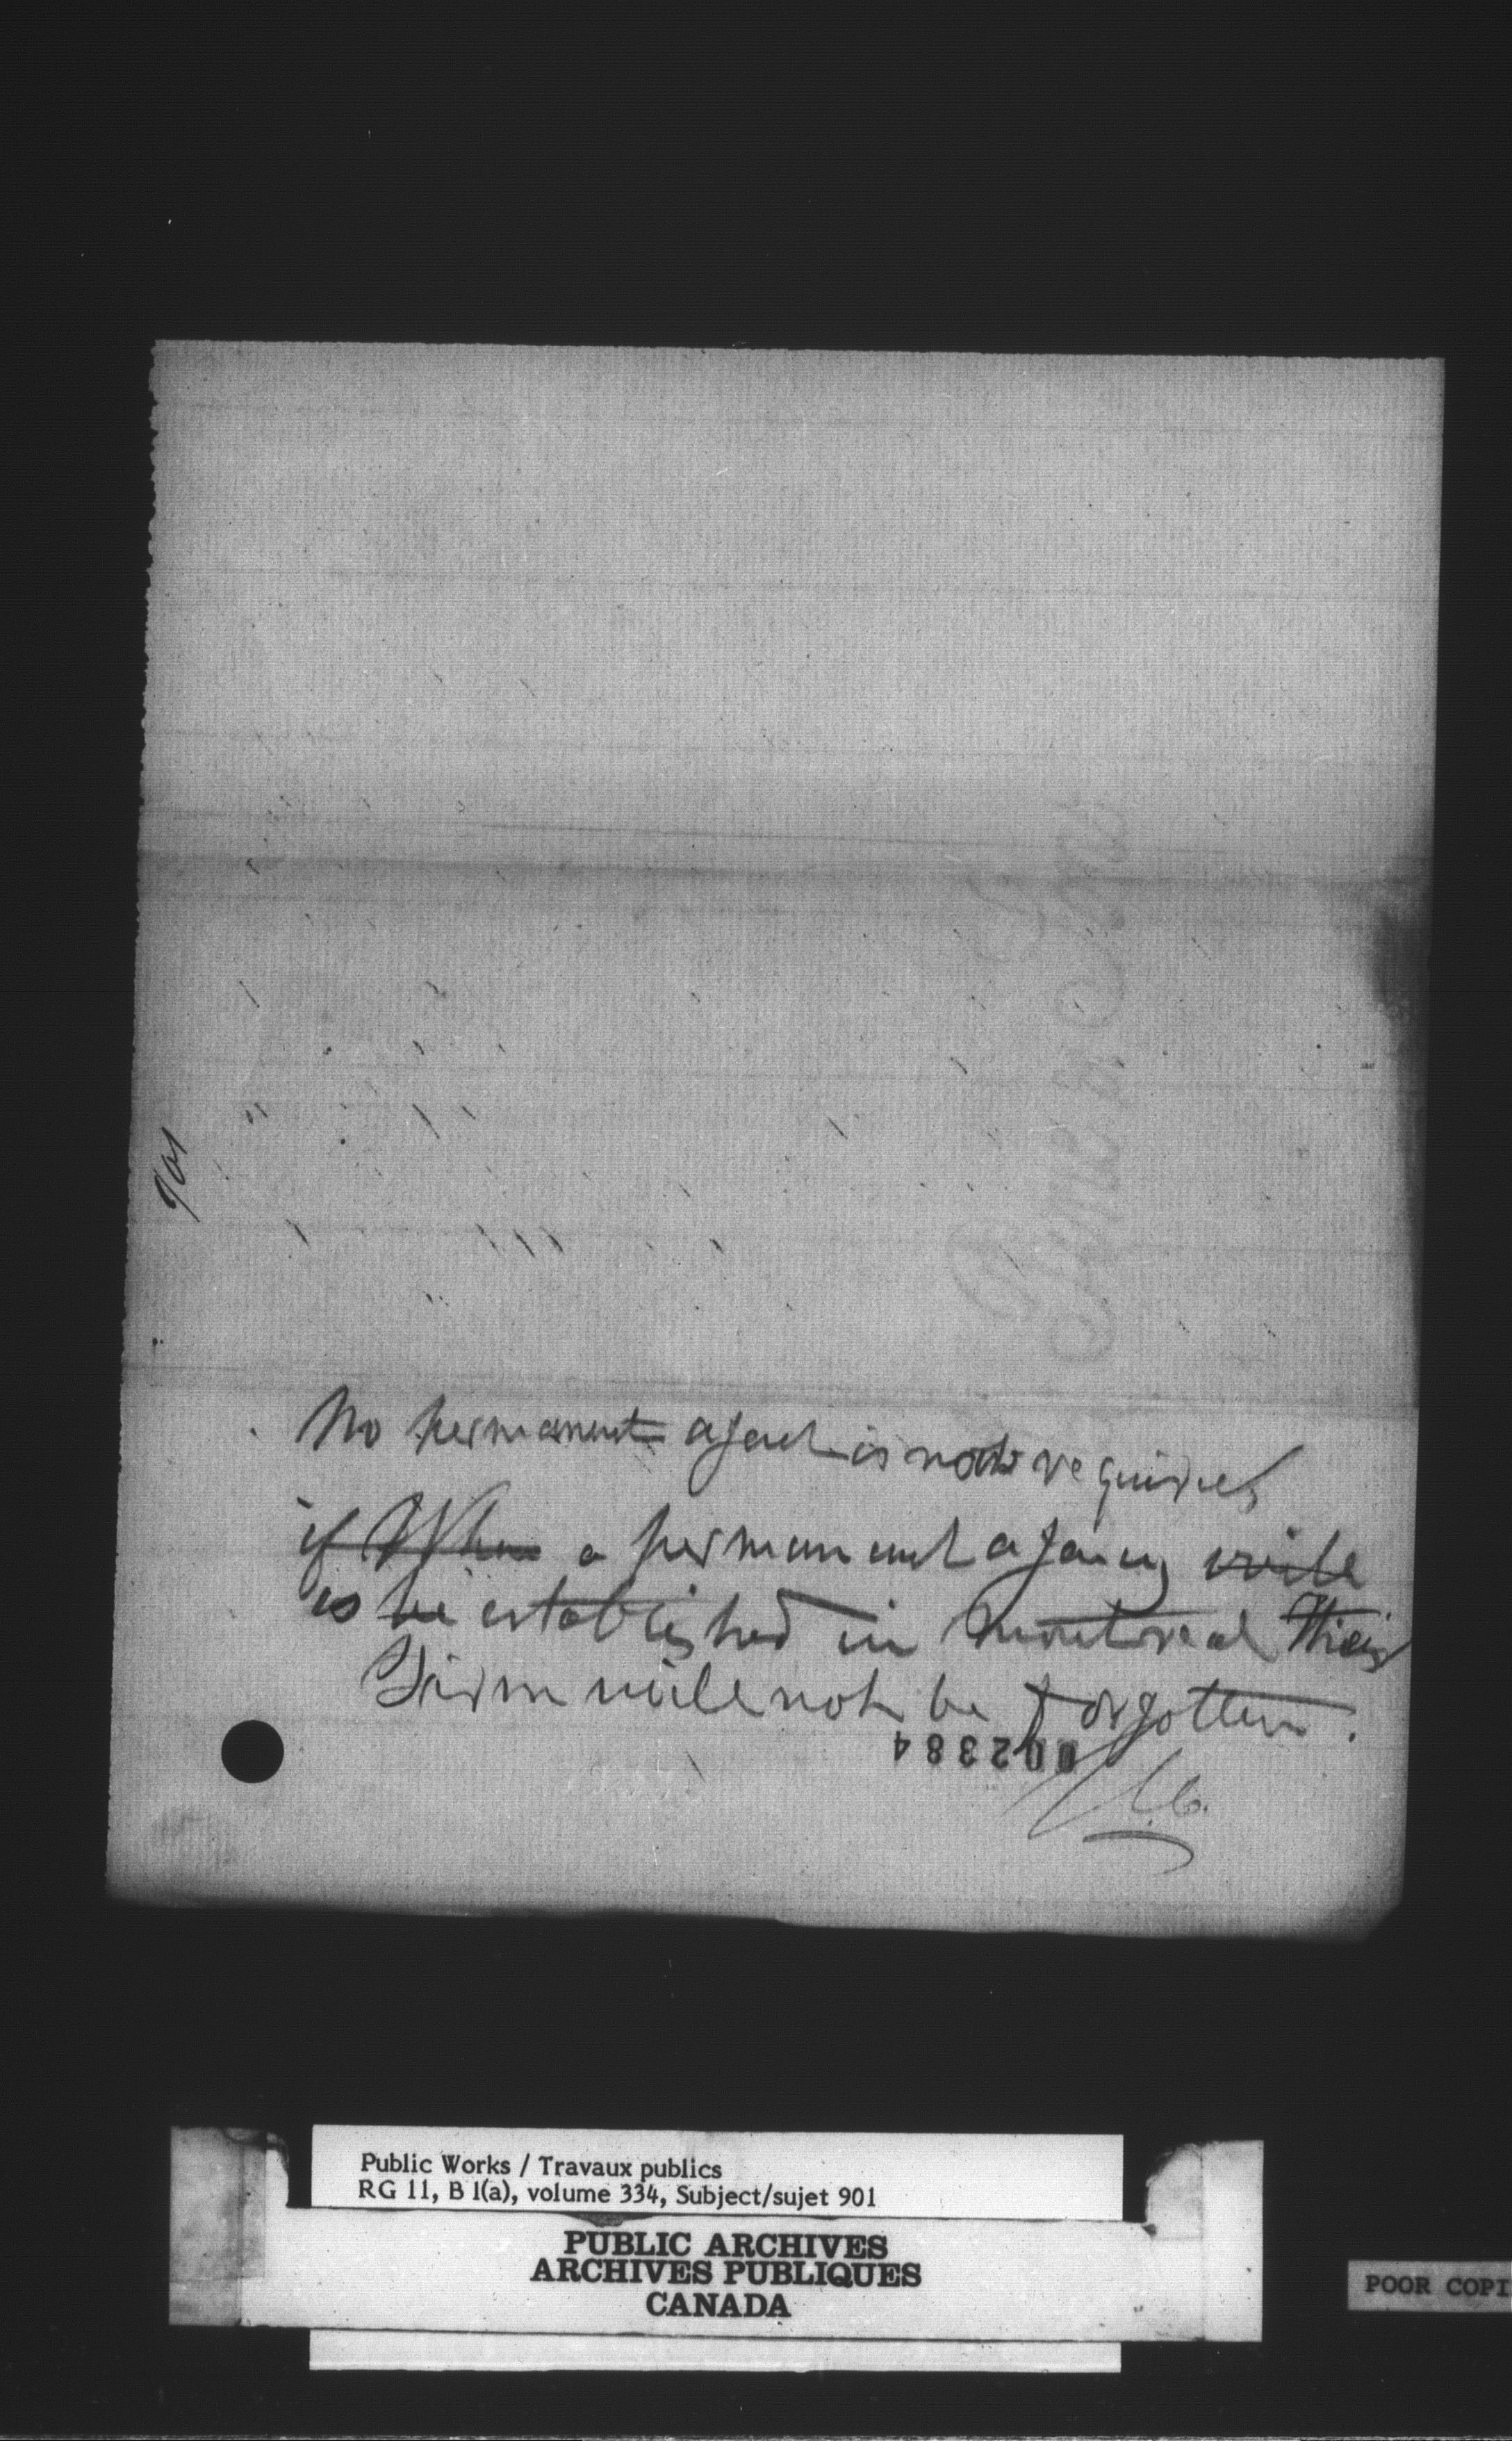 901
No permanent agent is now required
if When a permanent agency will
is be established in Montreal their
Firm will not be forgotten.
002384
Public Works / Travaux publics
RG 11, B 1(a), volume 334, Subject/sujet 901
PUBLIC ARCHIVES
ARCHIVES PUBLIQUES
CANADA
POOR COPI